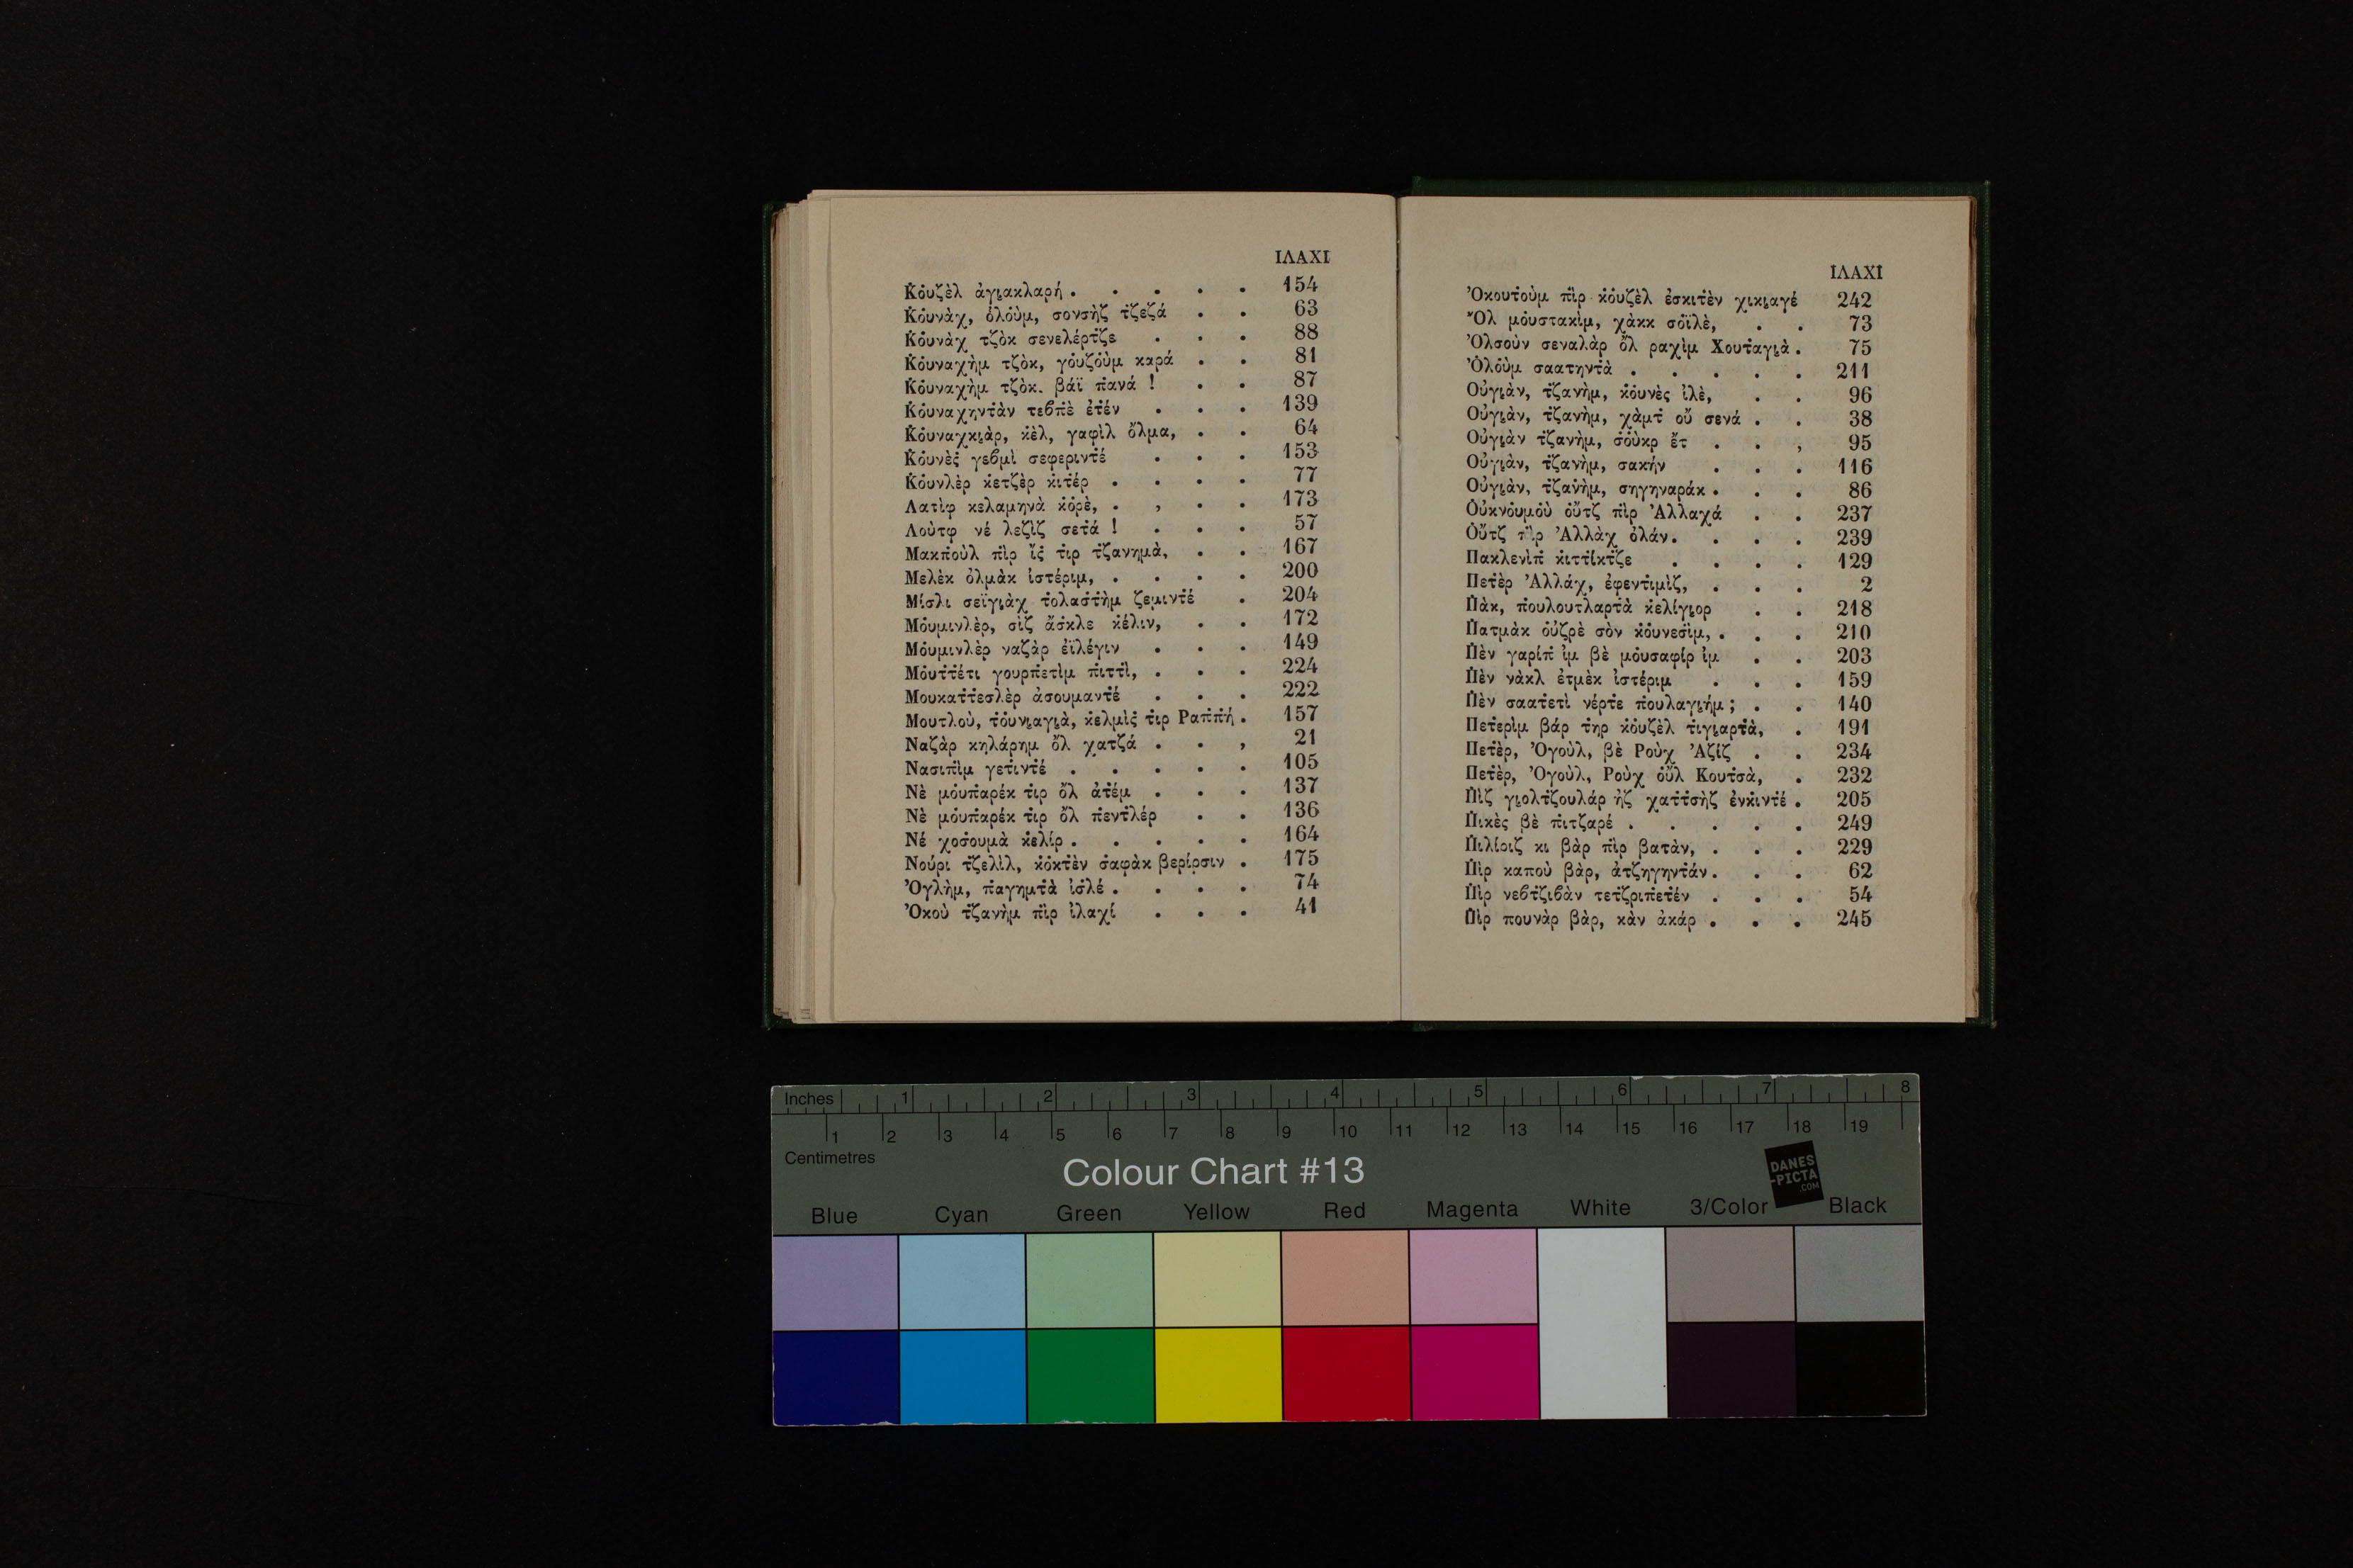 ΙΛΑΧΙ
Κ̇ο̇υζὲλ ἀγι̯ακλαρή . . . . . 154
Κ̇ο̇υνὰχ, ὀ̇λο̇ὺμ, σονσὴζ τ̇ζεζά . . 63
Κ̇ο̇υνὰχ τζὸκ σενελέρτ̇ζε . . . 88
Κ̇ο̇υναχὴμ τζὸκ, γο̇υζο̇ὺμ καρά . . 81
Κ̇ο̇υναχὴμ τζὸκ. βάϊ π̇ανά ! . . 87
Κ̇ο̇υναχηντ̇ὰν τεϐπὲ ἐτ̇έν . . . 139
Κ̇ο̇υναχκι̯ὰρ, κ̇ὲλ, γαφὶλ ὄλμα, . . 64
Κ̇ο̇υνὲσ̇ γεϐμὶ σεφεριντ̇έ . . . 153
Κ̇ο̇υνλὲρ κ̇ετζὲρ κ̇ιτ̇έρ . . . . 77
Λατὶφ κελαμηνὰ κ̇ο̇ρὲ, . , . . 173
Λοὺτφ νέ λεζὶζ σετ̇ά ! . . . 57
Μακπ̇οὺλ π̇ὶρ ἴσ̇ τ̇ιρ τ̇ζανημὰ, . . 167
Μελὲκ ὀλμὰκ ἰστέριμ, . . . . 200
Μίσλι σεϊγι̯ὰχ τ̇ολασ̇τ̇ὴμ ζεμιντ̇έ . 204
Μο̇υμινλὲρ, σὶζ ἄσ̇κλε κ̇έλιν, . . 172
Μο̇υμινλὲρ ναζὰρ ἐϊλέγιν . . . 149
Μο̇υτ̇τ̇έτι γουρπ̇ετὶμ π̇ιττὶ, . . . 224
Μουκατ̇τ̇εσλὲρ ἀσουμαντ̇έ . . . 222
Μουτλοὺ, τ̇ο̇υνι̯αγι̯ὰ, κ̇ελμὶσ̇ τ̇ιρ Ραπ̇π̇ή . 157
Ναζὰρ κηλάρημ ὄλ χατζά . . , 21
Νασιπ̇ὶμ γετ̇ιντ̇έ . . . . . 105
Νὲ μο̇υπ̇αρέκ τ̇ιρ ὄλ ἀτ̇έμ . . . 137
Νὲ μο̇υπ̇αρέκ τ̇ιρ ὄλ π̇εντ̇λέρ . . 136
Νέ χοσ̇ουμὰ κ̇ελίρ . . . . . 164
Νούρι τ̇ζελὶλ, κ̇ο̇κτὲν σ̇αφὰκ βερίρσιν . 175
Ὀγλὴμ, π̇αγημτ̇ὰ ἰσ̇λέ . . . . 74
Ὀκοὺ τ̇ζανὴμ π̇ὶρ ἰλαχί . . . 41
ΙΛΑΧΙ
Ὀκουτ̇οὺμ π̇ὶρ κ̇ο̇υζὲλ ἐσκιτ̇ὲν χικι̯αγέ 242
Ὂλ μο̇υστακὶμ, χὰκκ σο̇ϊλὲ, . . 73
Ὀλσοὺν σεναλὰρ ὄλ ραχὶμ Χουτ̇αγι̯ὰ . 75
Ὀ̇λο̇ὺμ σαατηντ̇ὰ . . . . . 211
Οὐγι̯ὰν, τ̇ζανὴμ, κ̇ο̇υνὲς̇ ἰλὲ, . . 96
Οὐγι̯ὰν, τ̇ζανὴμ, χὰμτ̇ οὔ σενά . . 38
Οὐγι̯ὰν τ̇ζανὴμ, σ̇ο̇ὺκρ ἔτ . . , 95
Οὐγι̯ὰν, τ̇ζανὴμ, σακήν . . . 116
Οὐγι̯ὰν, τ̇ζανὴμ, σηγηναράκ . . . 86
Ο̇ὐκνο̇υμο̇ὺ ο̇ὔτζ π̇ὶρ Ἀλλαχά . . 237
Ο̇ὔτζ π̇ὶρ Ἀλλὰχ ὀλάν. . . . 239
Πακλενὶπ̇ κ̇ιττίκτ̇ζε . . . . 129
Πετ̇ὲρ Ἀλλάχ, ἐφεντ̇ιμὶζ, . . . 2
Π̇ὰκ, π̇ουλουτλαρτ̇ὰ κ̇ελίγι̯ορ . . 218
Π̇ατμὰκ ο̇ὐζρὲ σὸν κ̇ο̇υνεσ̇ὶμ, . . . 210
Π̇ὲν γαρίπ̇ ἰμ βὲ μο̇υσαφίρ ἰμ . . 203
Π̇ὲν νὰκλ ἐτμὲκ ἰστέριμ . . . 159
Π̇ὲν σαατετὶ νέρτ̇ε π̇ουλαγι̯ήμ ; . . 140
Πετ̇ερὶμ βάρ τ̇ηρ κ̇ο̇υζὲλ τ̇ιγι̯αρτ̇ὰ, . 191
Πετ̇ὲρ, Ὀγοὺλ, βὲ Ροὺχ Ἀζίζ . . 234
Πετ̇ὲρ, Ὀγοὺλ, Ροὺχ ο̇ὔλ Κουτ̇σὰ, . 232
Π̇ὶζ γι̯ολτ̇ζουλάρ ἠζ χατ̇τ̇σὴζ ἐνκ̇ιντ̇έ . 205
Π̇ικὲς βὲ π̇ιτζαρέ . . . . . 249
Π̇ιλίριζ κι βὰρ π̇ὶρ βατὰν, . . . 229
Π̇ὶρ καποὺ βὰρ, ἀτζηγηντ̇άν . . . 62
Π̇ὶρ νεϐτζιϐὰν τετ̇ζριπ̇ετ̇έν . . . 54
Π̇ὶρ πουνὰρ βὰρ, κὰν ἀκάρ . . . 245
Inches 1 2 3 4 5 6 7 8
1 2 3 4 5 6 7 8 9 10 11 12 13 14 15 16 17 18 19
Centimetres
Colour Chart #13
DANES
-PICTA
.COM
Blue Cyan Green Yellow Red Magenta White 3/Color Black